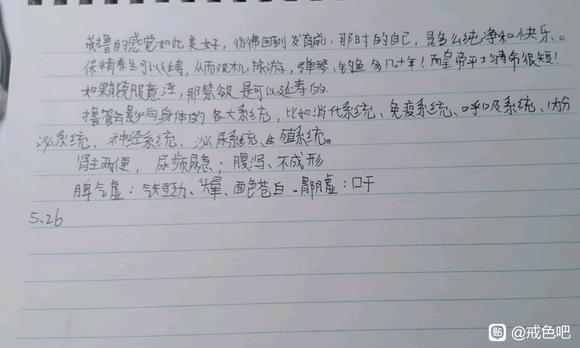 戒撸的感觉如此美好，仿佛回到发育前，那时的自己，是多么纯净和快乐。
保精养生可以续，从而观机旅游，弹琴、钓鱼多几十年！而皇帝平均寿命很短！
如果能服意淫，那禁欲是可以延寿的。
撸管会影响身体的各大系统，比如消化系统、免疫系统、呼吸系统、内分
泌系统、神经系统，泌尿系统、生殖系统。
肾主两便，尿频尿急；腹泻、不成形
脾气虚：乏力、头晕、面色苍白。肾阴虚：口干
5.26
贴 @戒色吧